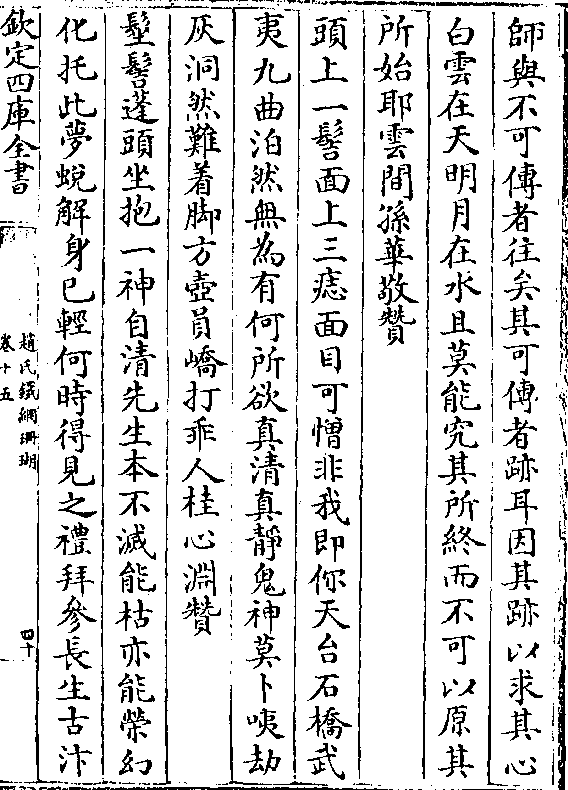 師與不可傳者往矣其可傳者跡耳因其跡以求其心
白雲在天明月在水且莫能究其所終而不可以原其
所始耶雲間孫華敬贊
頭上一髻面上三痣面目可憎非我即你天台石橋武
夷九曲泊然無為有何所欲真清真靜鬼神莫卜咦劫
灰洞然難着脚方壺員嶠打乖人桂心淵贊
髽髻蓬頭坐抱一神自清先生本不滅能枯亦能榮幻
化托此夢蛻解身已輕何時得見之禮拜參長生古汴
欽定四庫全書
趙氏鐵網珊瑚
卷十五
四十